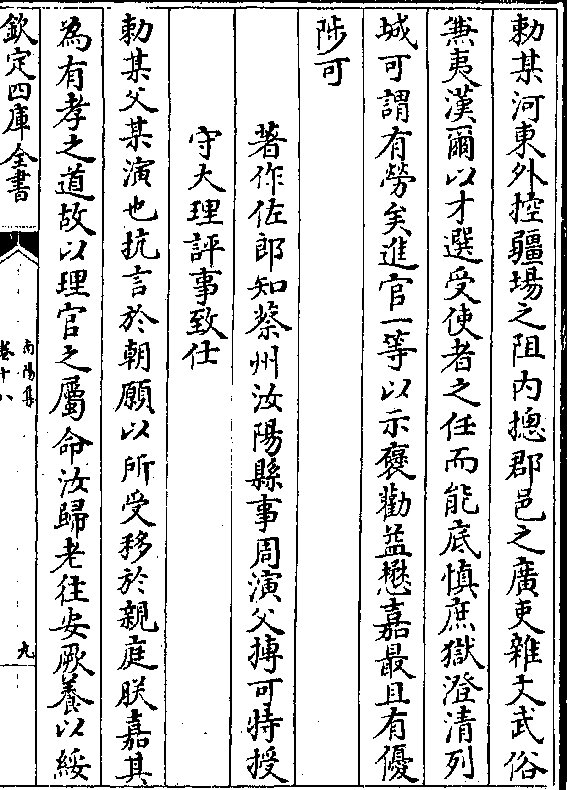 勅某河東外控疆埸之阻内摠郡邑之廣吏雜文武俗
兼夷漢爾以才選受使者之任而能底慎庶獄澄清列
城可謂有勞矣進官一等以示褒勸益懋嘉最且有優
陟可
著作佐郎知蔡州汝陽縣事周演父摶可特授
守大理評事致仕
勅某父某演也抗言於朝願以所受移於親庭朕嘉其
為有孝之道故以理官之屬命汝歸老往安厥養以綏
欽定四庫全書
南陽集
卷十八
九